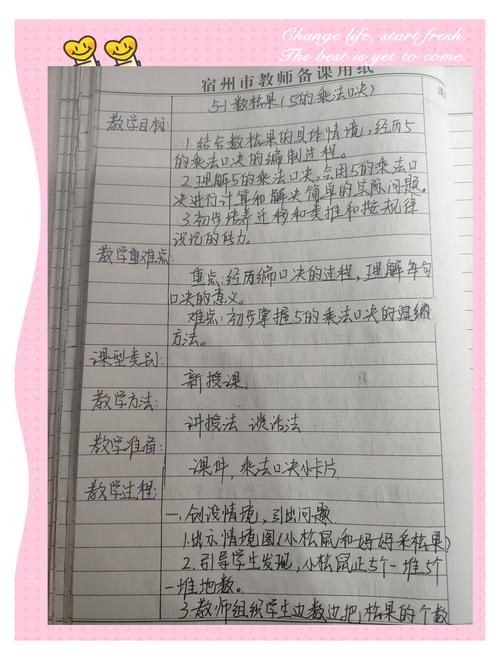 Change life, start fresh.
The best is yet to come.
宿州市教师备课用纸
5-1 数松果(5的乘法口决)
教学目标:
1.结合数松果的具体情境,经历5
的乘法口决的编制过程。
2.理解5的乘法口决,会用5的乘法口
决进行计算和解决简单的实际问题。
3.初步培养迁移和类推和按规律
识记的能力。
教学重难点:
重点:经历编口决的过程,理解每句
口决的意义。
难点:初步掌握5的乘法口决的
方法。
课型类别:
新授课
教学方法:
讲授法 谈话法
教学准备:
课件,乘法口决小卡片
教学过程:
一.创设情境,引出问题
1.出示情境图(小松鼠和好好采松果)
2.引导学生发现,小松鼠正5个一堆5个
一堆地数。
3.教师组织学生边数边把,松果的个数